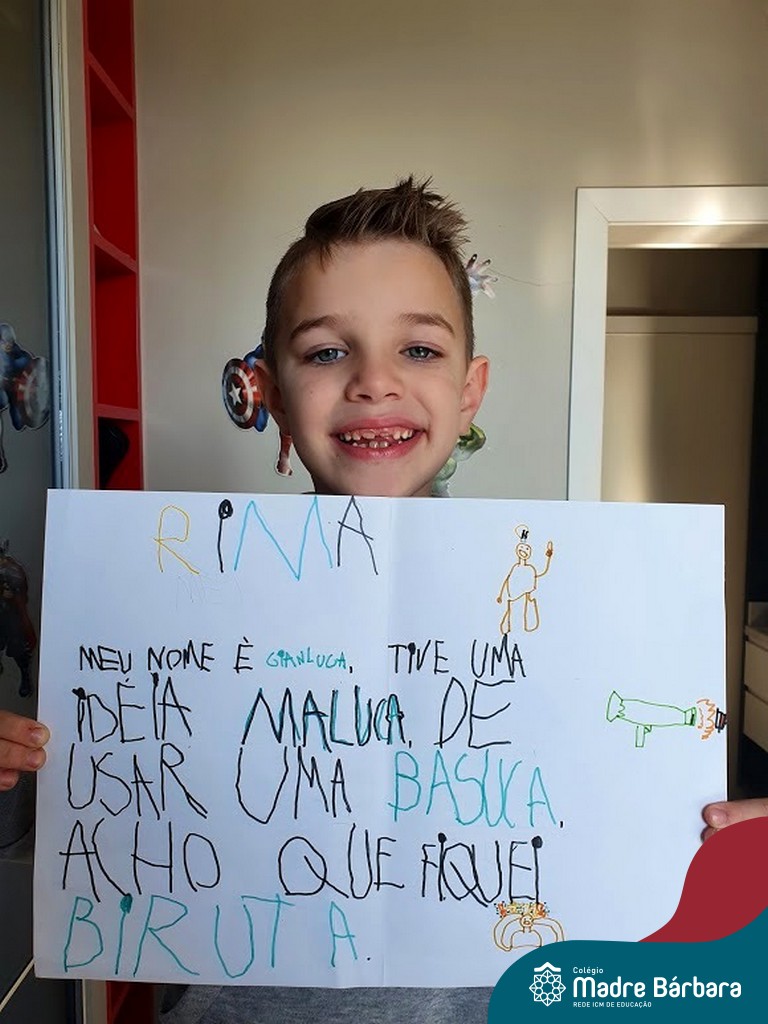 RIMA
MEU NOME È GIANLUCA. TIVE UMA
IDÉIA MALUCA, DE
USAR UMA BASUCA.
ACHO QUE FIQUEI
BIRUTA.
Colégio
Madre Bárbara
REDE ICM DE EDUCAÇÃO